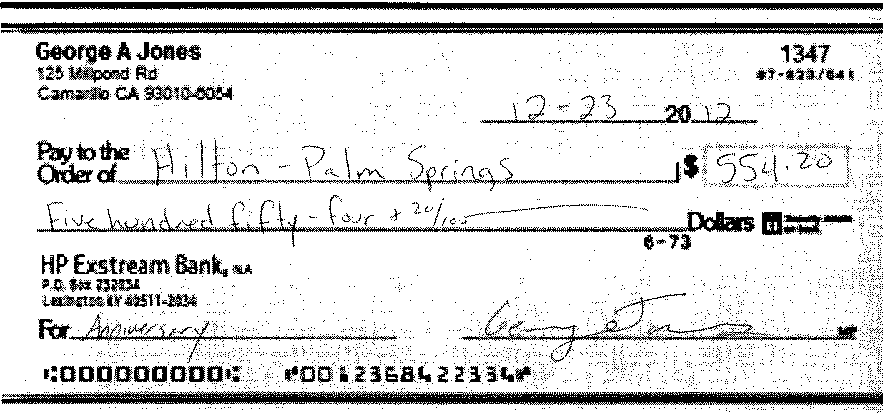 George A Jones 1347
125 Millpond Rd
Camarillo CA 93010-5054
12-23 20 12
Pay to the
Order of Hilton - Palm Springs $ 554.20
Five hundred fifty-four + 20/100 Dollars
6-73
HP Exstream Bank, N.A.
P.O. Box 232034
Lexington KY 40511-2034
For Anniversary George Jones MP
⑆000000000⑆ ⑈001236842233⑈